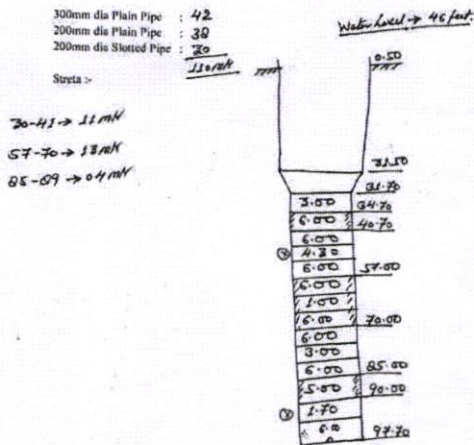 300mm dia Plain Pipe : 42
200mm dia Plain Pipe : 38
200mm dia Slotted Pipe : 30
110 mtr
Streta :-
30-41 → 11 mtr
57-70 → 13 mtr
85-89 → 04 mtr
Water Level → 46 feet.
0.50
31.50
31.70
3.00
34.70
6.00
40.70
6.00
4.30
6.00
57.00
6.00
1.00
6.00
70.00
6.00
3.00
6.00
85.00
5.00
90.00
1.70
6.0
97.70